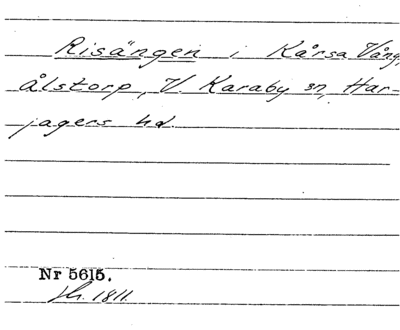 Risängen i Kårsa Vång,
Ålstorp, V. Karaby sn, Har-
jagers hd.
Nr 5615.
1811.